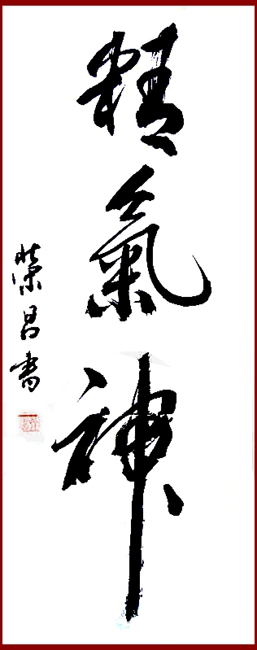 精氣神
榮昌書